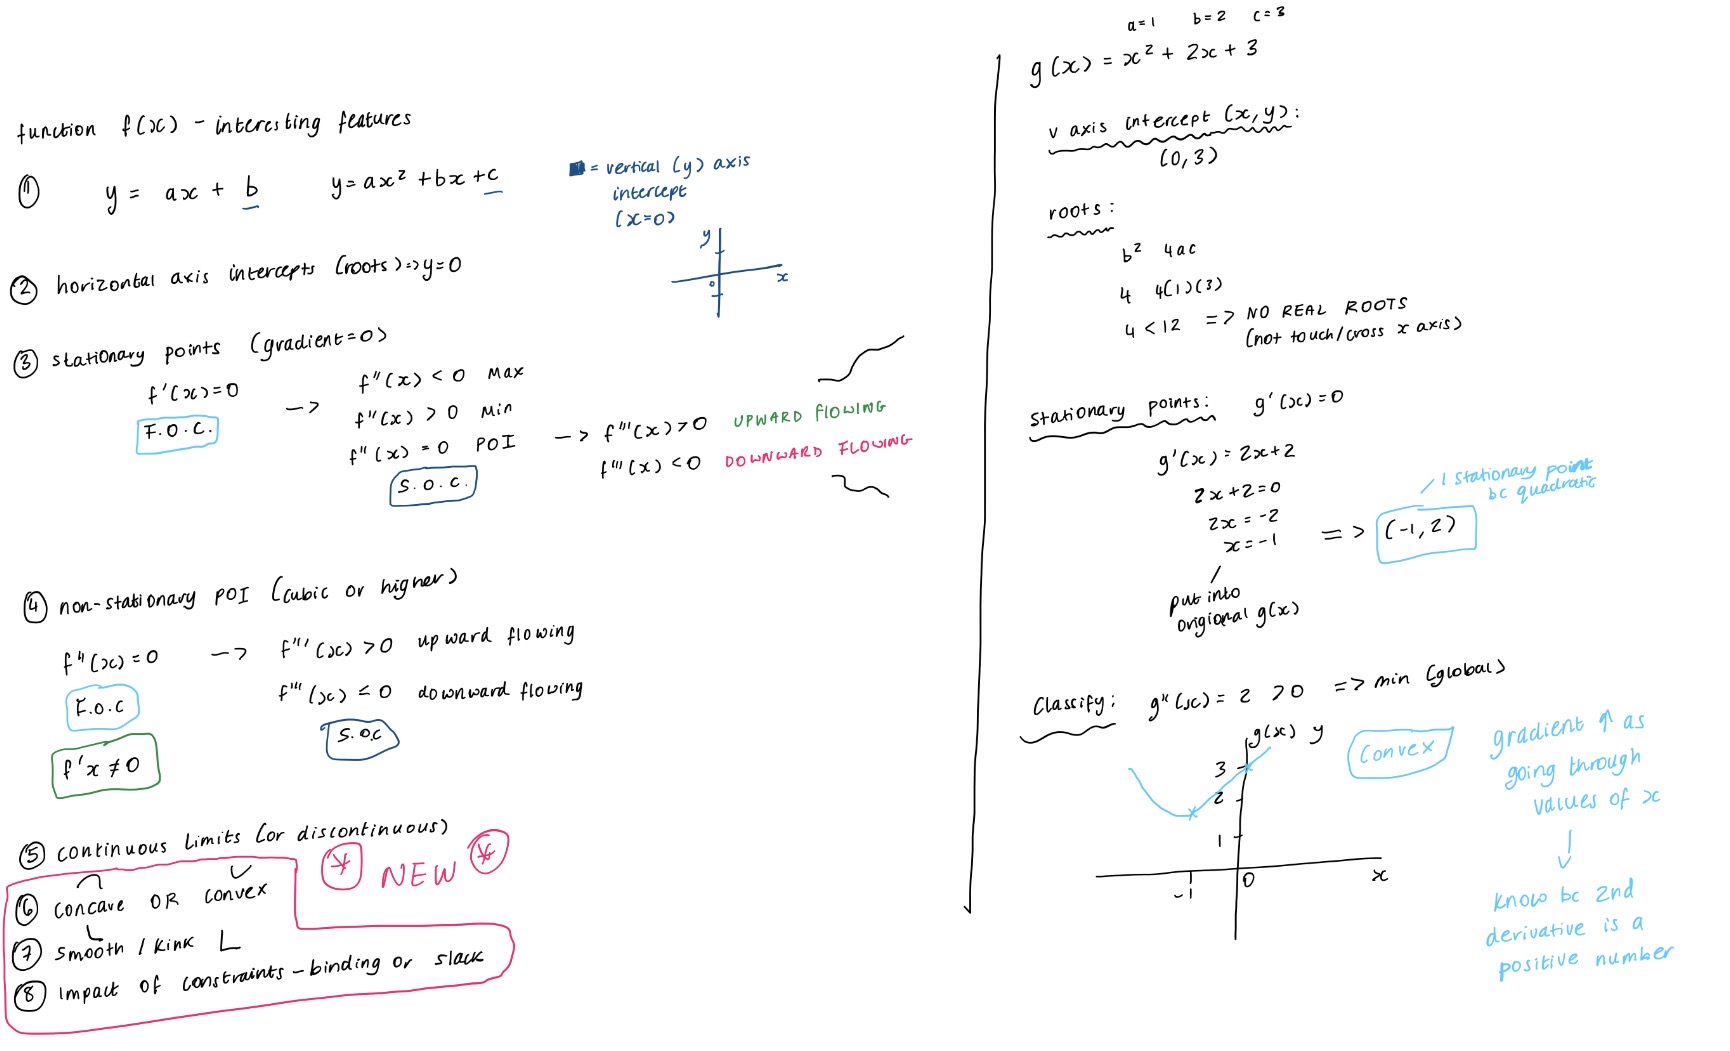 function f(x) - interesting features
① y = ax + b y = ax² + bx + c
= vertical (y) axis
intercept
(x=0)
y
x
0
② horizontal axis intercepts (roots) => y=0
③ stationary points (gradient=0)
f'(x)=0 -> f''(x) < 0 Max
F.O.C.
f''(x) > 0 Min
f''(x) = 0 POI -> f'''(x) > 0 UPWARD FLOWING
f'''(x) < 0 DOWNWARD FLOWING
S.O.C.
④ non-stationary POI (cubic or higher)
f''(x)=0 -> f'''(x) > 0 upward flowing
f'''(x) ≤ 0 downward flowing
F.O.C
S.O.C
f'x ≠ 0
⑤ continuous limits (or discontinuous)
* NEW *
⑥ concave OR convex
⑦ smooth / kink
⑧ impact of constraints - binding or slack
a=1 b=2 c=3
g(x) = x² + 2x + 3
v axis intercept (x,y):
(0,3)
roots:
b² 4ac
4 4(1)(3)
4 < 12 => NO REAL ROOTS
(not touch/cross x axis)
stationary points: g'(x)=0
g'(x) = 2x+2
2x+2=0
2x = -2
x = -1 => (-1,2)
1 stationary point
bc quadratic
put into
origional g(x)
Classify: g''(x) = 2 > 0 => min (global)
g(x) y
3
2
1
-1
0
x
Convex
gradient ↑ as
going through
values of x
know bc 2nd
derivative is a
positive number